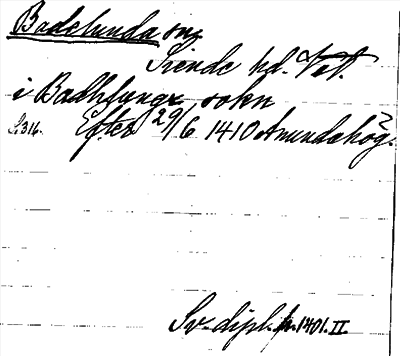 Badelunda sn,
Siende hd. Vstl.
i Badhlungx sokn
S. 316. Efter 29/6 1410 Amundahög.
Sv. dipl. fr. 1401. II.